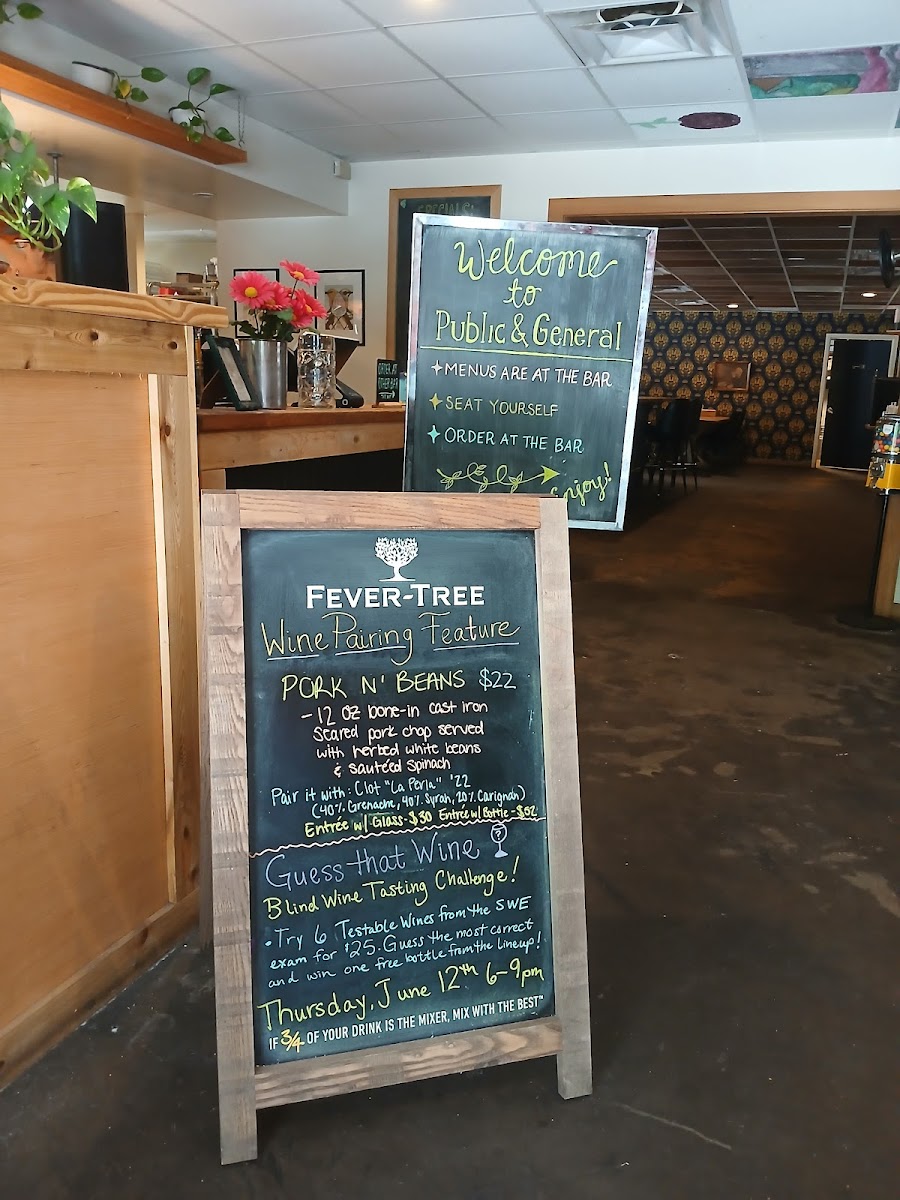 SPECIALS:
Welcome
to
Public & General
MENUS ARE AT THE BAR
SEAT YOURSELF
ORDER AT THE BAR
Enjoy!
ORDER AT
OTHER BAR
FEVER-TREE
Wine Pairing Feature
PORK N' BEANS $22
- 12 oz bone-in cast iron
Seared pork chop served
with herbed white beans
& sautéed spinach
Pair it with: Clot "La Perla" '22
(40% Grenache, 40% Syrah, 20% Carignan)
Entrée w/ Glass-$30 Entrée w/ Bottle-$52
Guess that Wine ?
Blind Wine Tasting Challenge!
• Try 6 Testable Wines from the SWE
exam for $25. Guess the most correct
and win one free bottle from the lineup!
Thursday, June 12th 6-9pm
IF 3/4 OF YOUR DRINK IS THE MIXER, MIX WITH THE BEST™